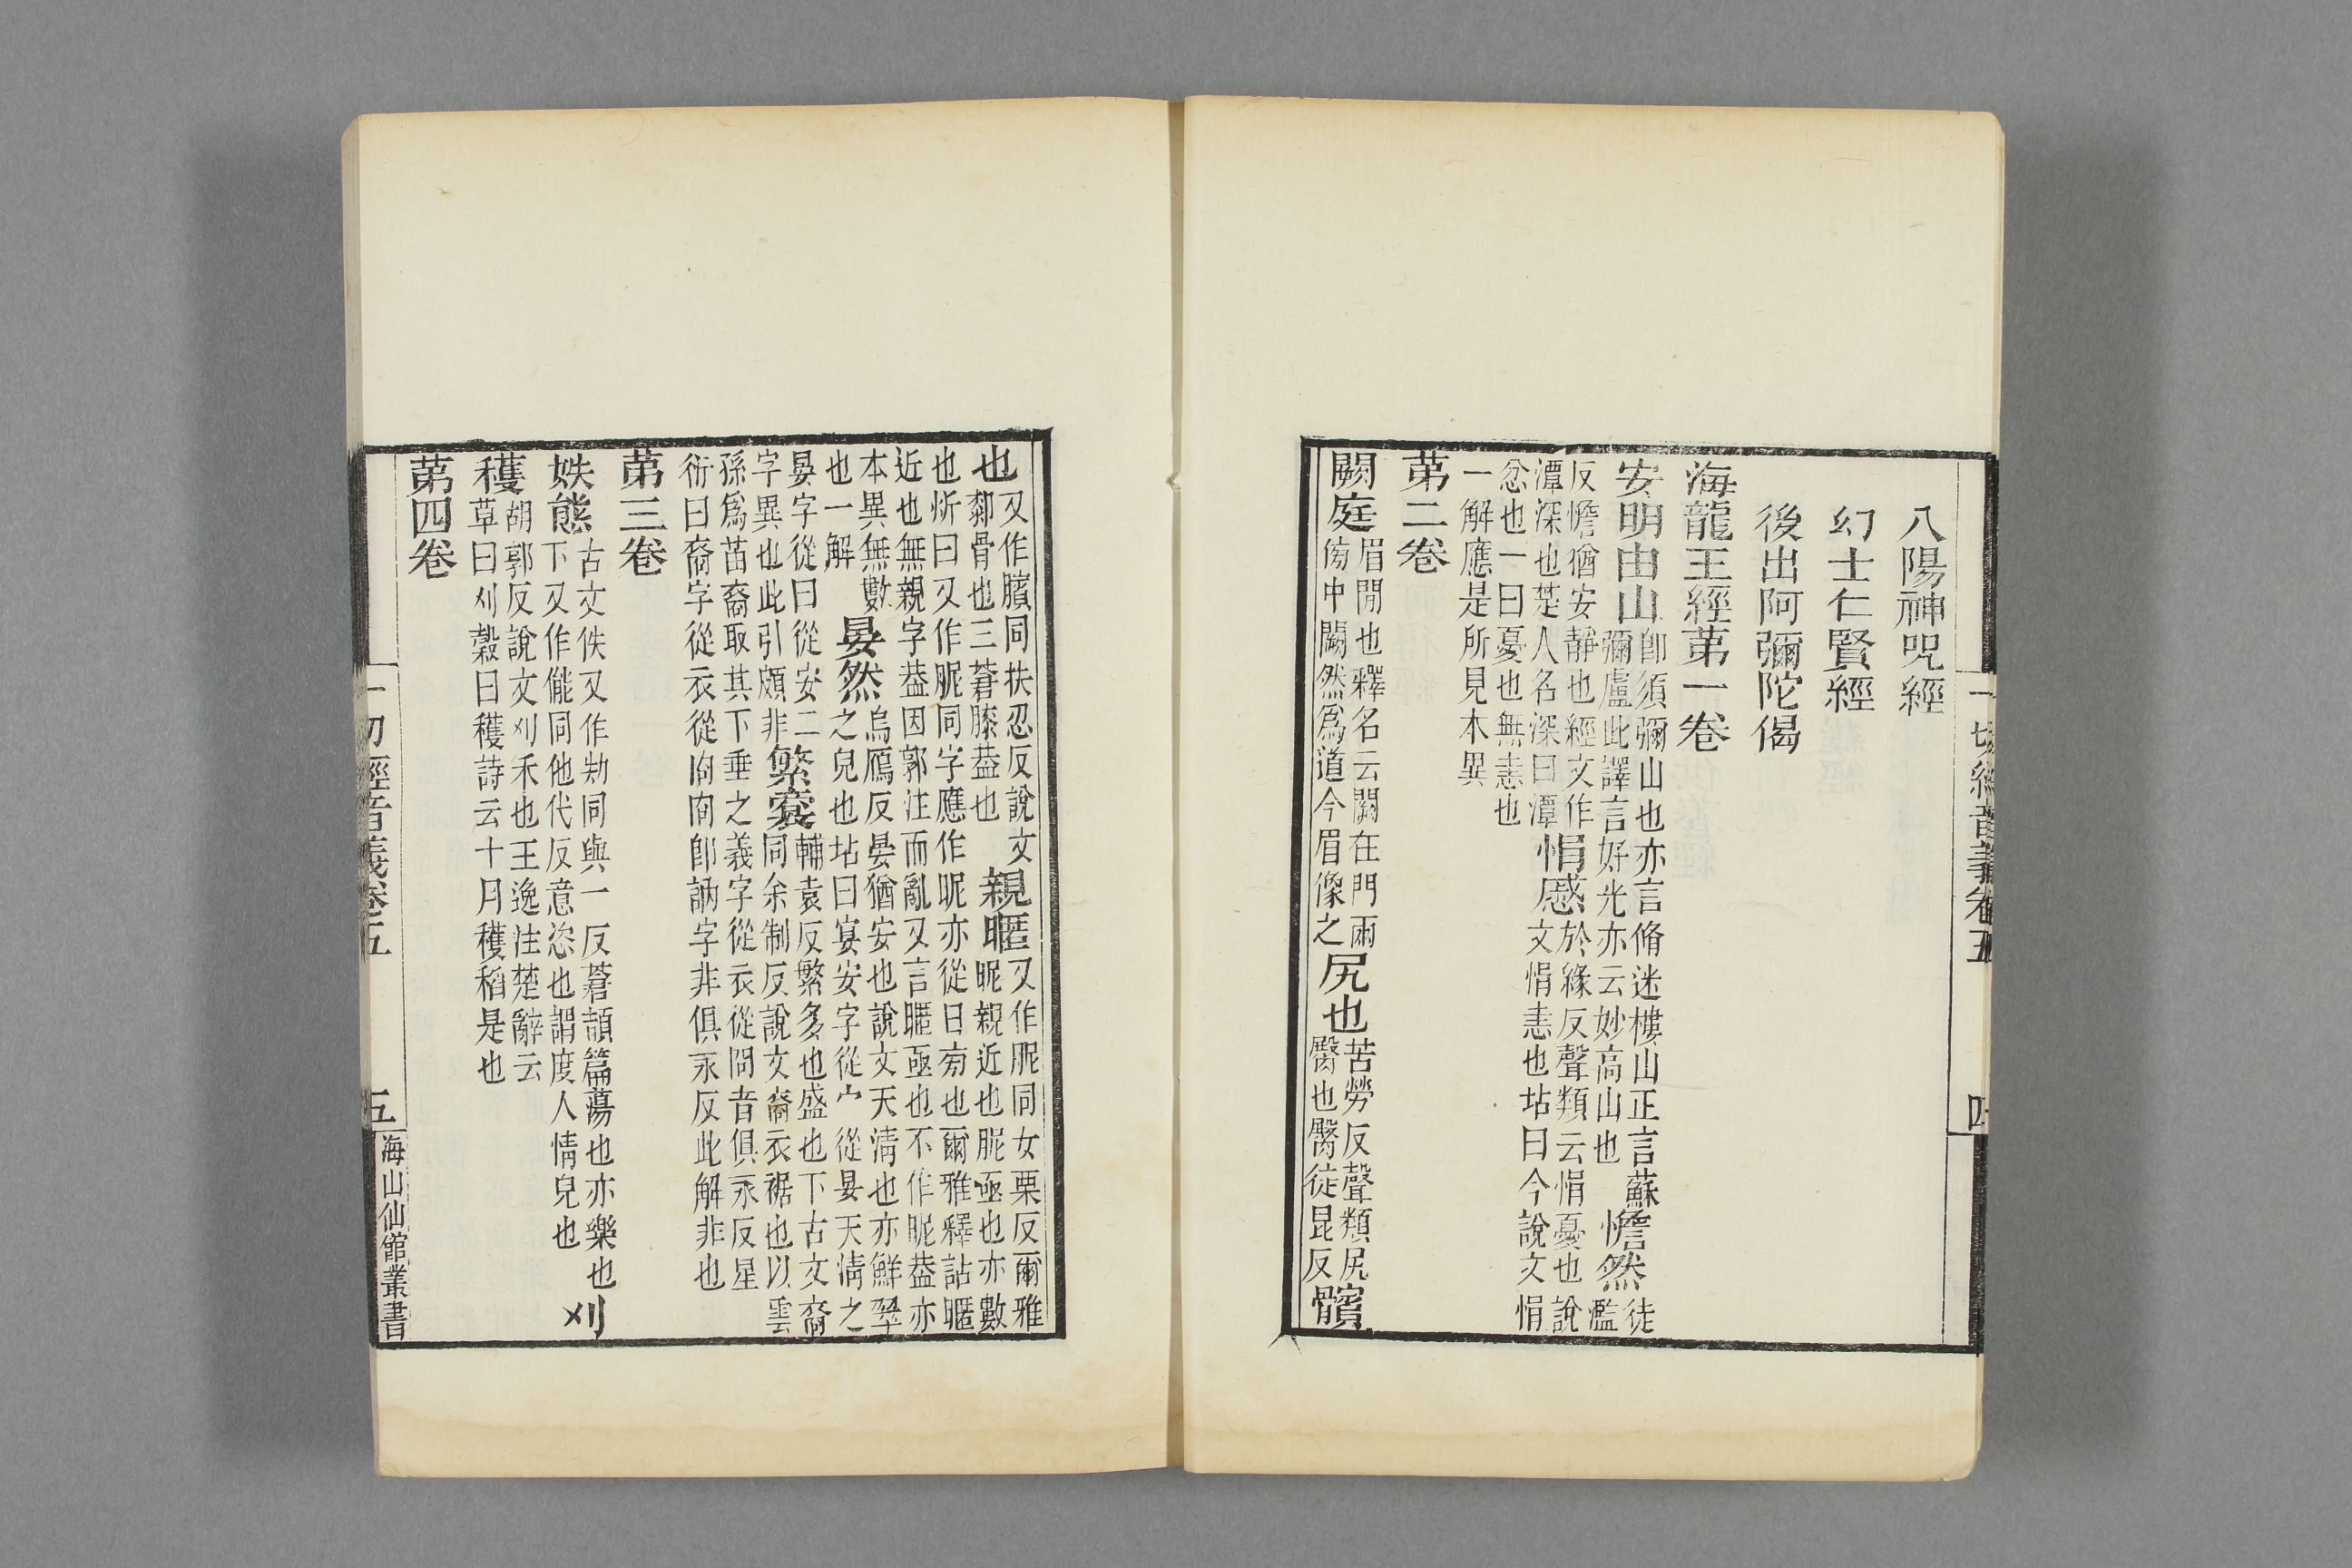 一切經音義卷五 四
八陽神咒經
幻士仁賢經
後出阿彌陀偈
海龍王經苐一卷
安明由山卽須彌山也亦言脩迷樓山正言蘇彌盧此譯言好光亦云妙高山也憺然徒濫
反憺猶安静也經文作潭深也楚人名深曰潭悁慼於緣反聲類云悁憂也說文悁恚也坫曰今說文悁
忿也一曰憂也無恚也一解應是所見本異
苐二卷
闕庭眉閒也釋名云闕在門兩傍中闕然爲道今眉像之尻也苦勞反聲類尻臀也臀徒昆反髕
也又作臏同扶忍反說文厀骨也三蒼膝葢也親暱又作胒同女栗反爾雅昵親近也胒亟也亦數
也炘曰又作胒同字應作昵亦從日旁也爾雅釋詁暱近也無親字葢因郭注而亂又言暱亟也不作胒葢亦
本異無數也一解晏然烏鴈反晏猶安也說文天清也亦鮮翠之皃也坫曰宴安字從宀從晏天清之
晏字從日從安二字異也此引頗非繁裔輔袁反繁多也盛也下古文裔同余制反說文裔衣裾也以雲
孫爲苗裔取其下垂之義字從衣從㕯音俱永反星衍曰裔字從衣從㕯㕯卽訥字非俱永反此解非也
苐三卷
妷態古文佚又作劮同與一反蒼頡篇蕩也亦樂也下又作儱同他代反意恣也謂度人情皃也刈
穫胡郭反說文刈禾也王逸注楚辭云草曰刈穀曰穫詩云十月穫稻是也
苐四卷
一切經音義卷五 五 海山仙館叢書